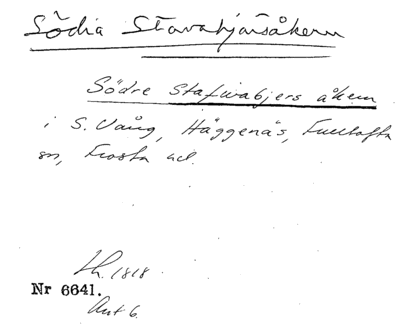 Södra Stavabjärsåkern
Södre Stafwabjers åkern
i S. Vång, Häggenäs, Fulltofta
sn, Frosta hd.
Lh. 1818
Nr 6641.
Akt 6.